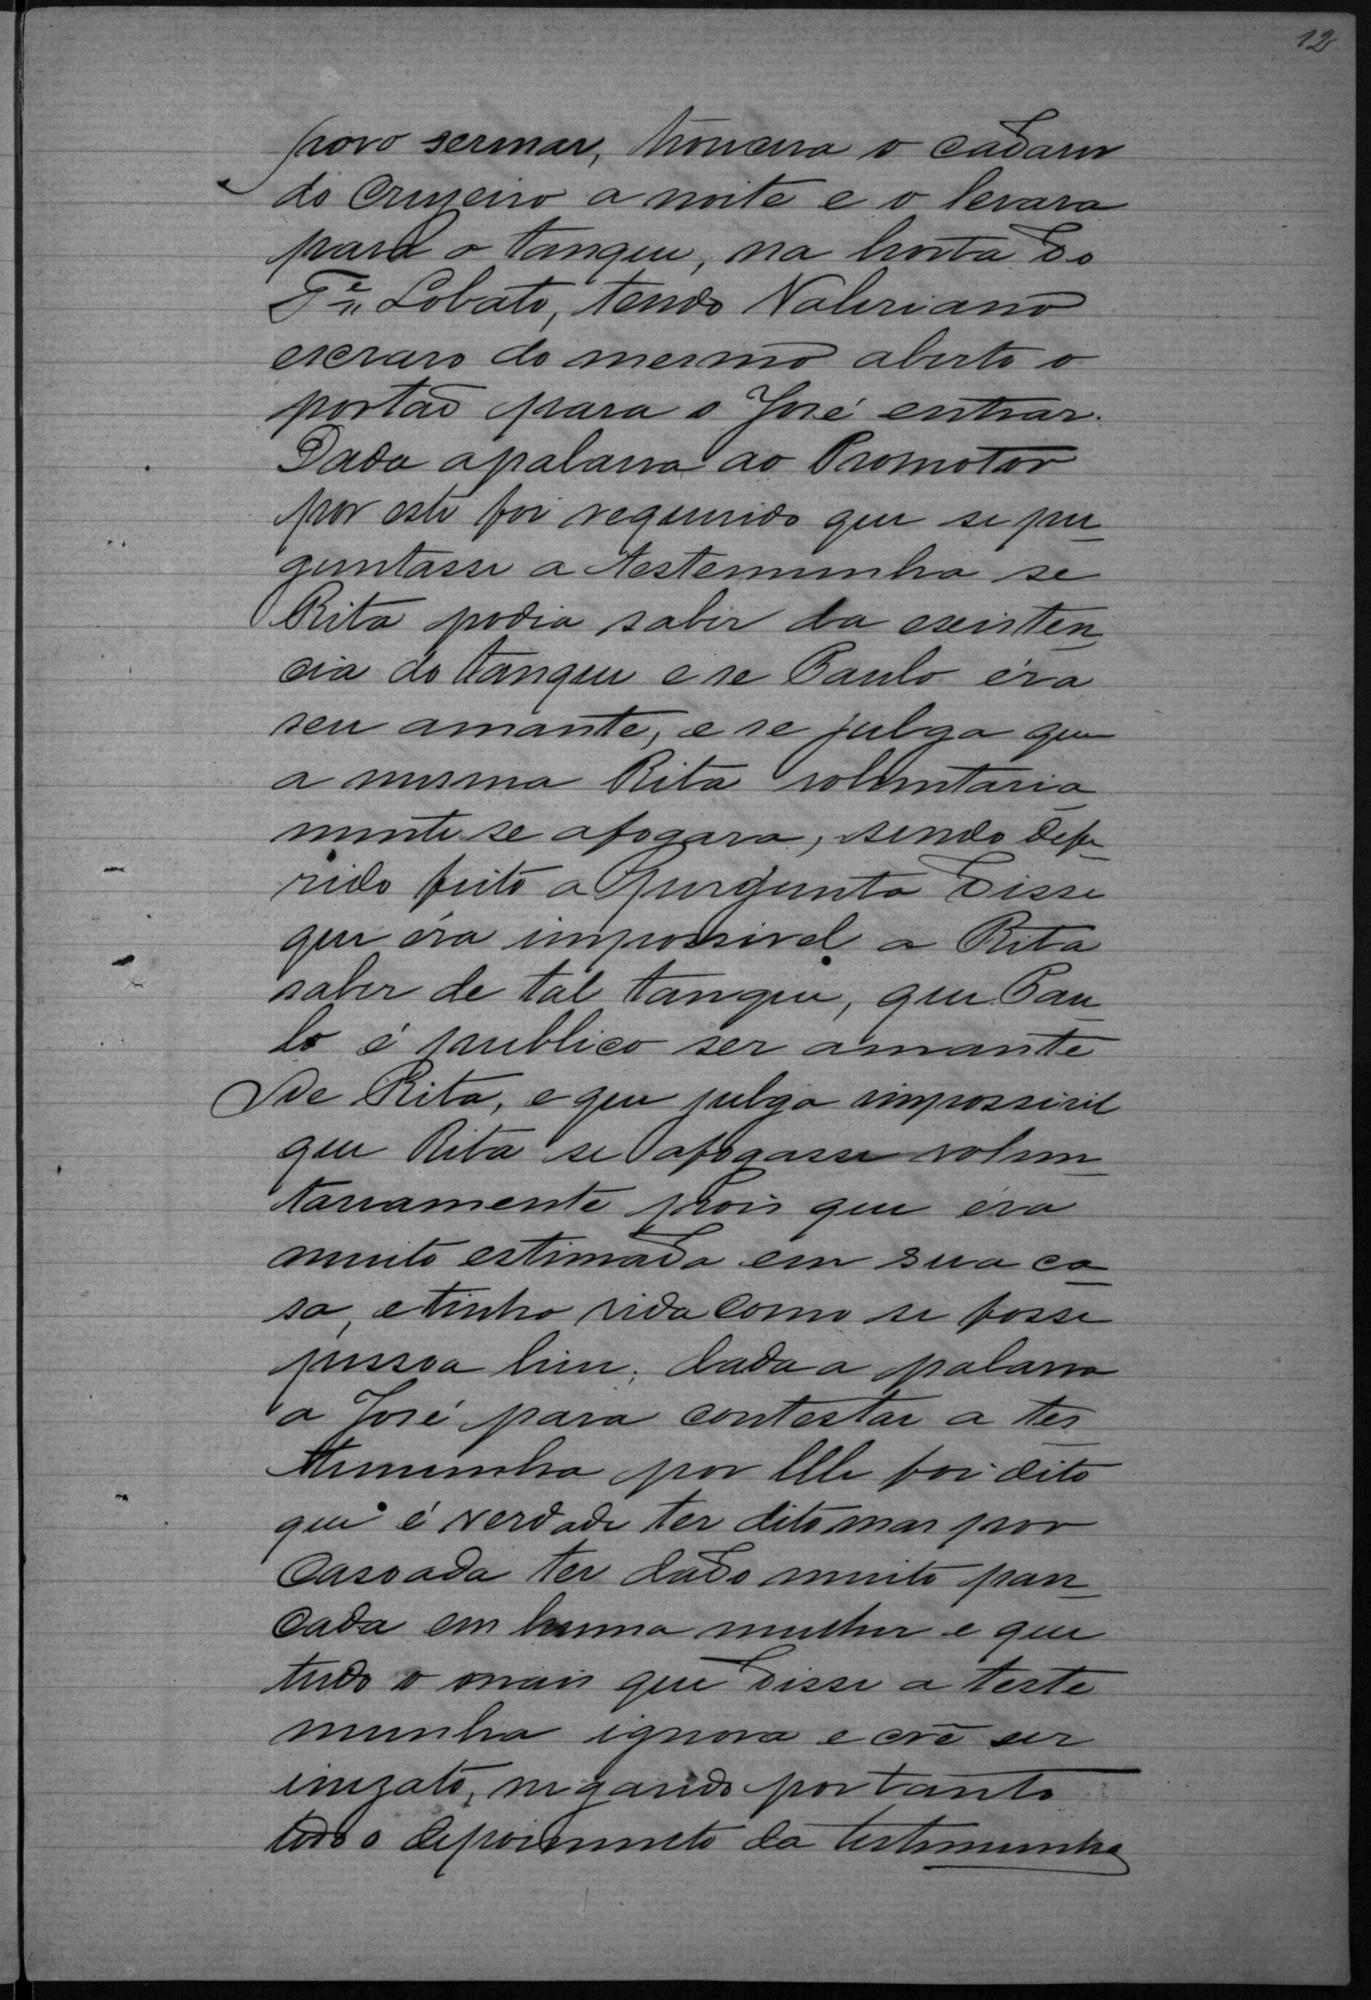 12
povo sermar, trouxera o cadaver
do Cruzeiro a noite e o levara
para o tanque, na horta do
Te. Lobato, tendo Valeriano
escravo do mesmo aberto o
portão para o José entrar.
Dada apalavra ao Promotor
por este foi requerido que se per
guntasse a testemunha se
Rita podia saber da existen
cia do tanque e se Paulo éra
seu amante, e se julga que
a mesma Rita voluntaria
mente se afogara, sendo defe
rido feito a pergunta disse
que éra impossivel a Rita
saber de tal tanque, que Pau
lo é publico ser amante
de Rita, e que julga impossivel
que Rita se afogasse volun
tariamente pois que éra
muito estimada em sua ca
sa, etinha vida como se fosse
pessoa livre. dada a palavra
a José para contestar a tes
temunha por elle foi dito
que é verdade ter dito mas por
cassoada ter dado muito pan
cada em huma mulher e que
tudo o mais que disse a teste
munha ignora e crê ser
inezato, negando portanto
todo o depoimento da testemunha